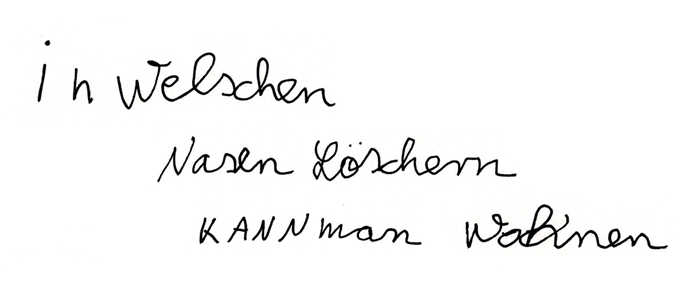 in Welschen
Nasen Löschern
KANN man Wohnen